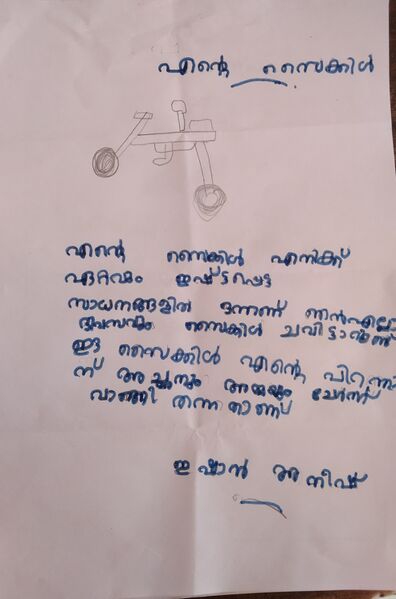 എന്റെ സൈക്കിൾ
എന്റെ സൈക്കിൾ എനിക്ക്
ഏറ്റവും ഇഷ്ടപ്പെട്ട
സാധനങ്ങളിൽ ഒന്നണ് ഞൻഎല്ലാ
ദിവസവും സൈക്കിൾ ചവിട്ടാറുണ്ട്
ഈ സൈക്കിൾ എന്റെ പിറന്നാ
ന് അച്ഛനും അമ്മയും ചേർന്ന്
വാങ്ങി തന്നതാണ്
ഇഷാൻ അനീഷ്